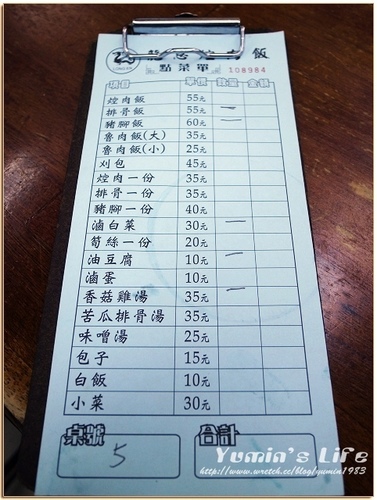 飯
點菜單 108984
項目 單價 數量 金額
焢肉飯 55元
排骨飯 55元 一
豬腳飯 60元 一
魯肉飯(大) 35元
魯肉飯(小) 25元
刈包 45元
焢肉一份 35元
排骨一份 35元
豬腳一份 40元
滷白菜 30元 一
筍絲一份 20元
油豆腐 10元 一
滷蛋 10元
香菇雞湯 35元 一
苦瓜排骨湯 35元
味噌湯 25元
包子 15元
白飯 10元
小菜 30元
桌號 5 合計
Yumin's Life
http://www.wretch.cc/blog/yumin1983